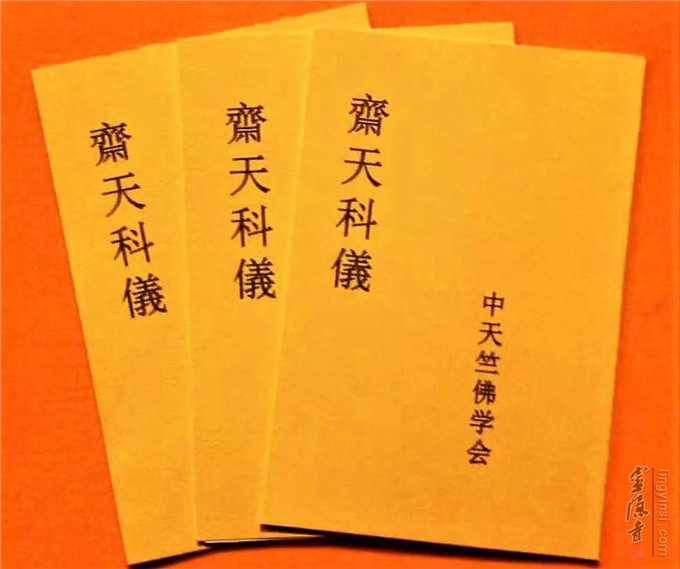 齋天科儀
齋天科儀
齋天科儀
中天竺佛学会
靈隱寺
lingyinsi.com